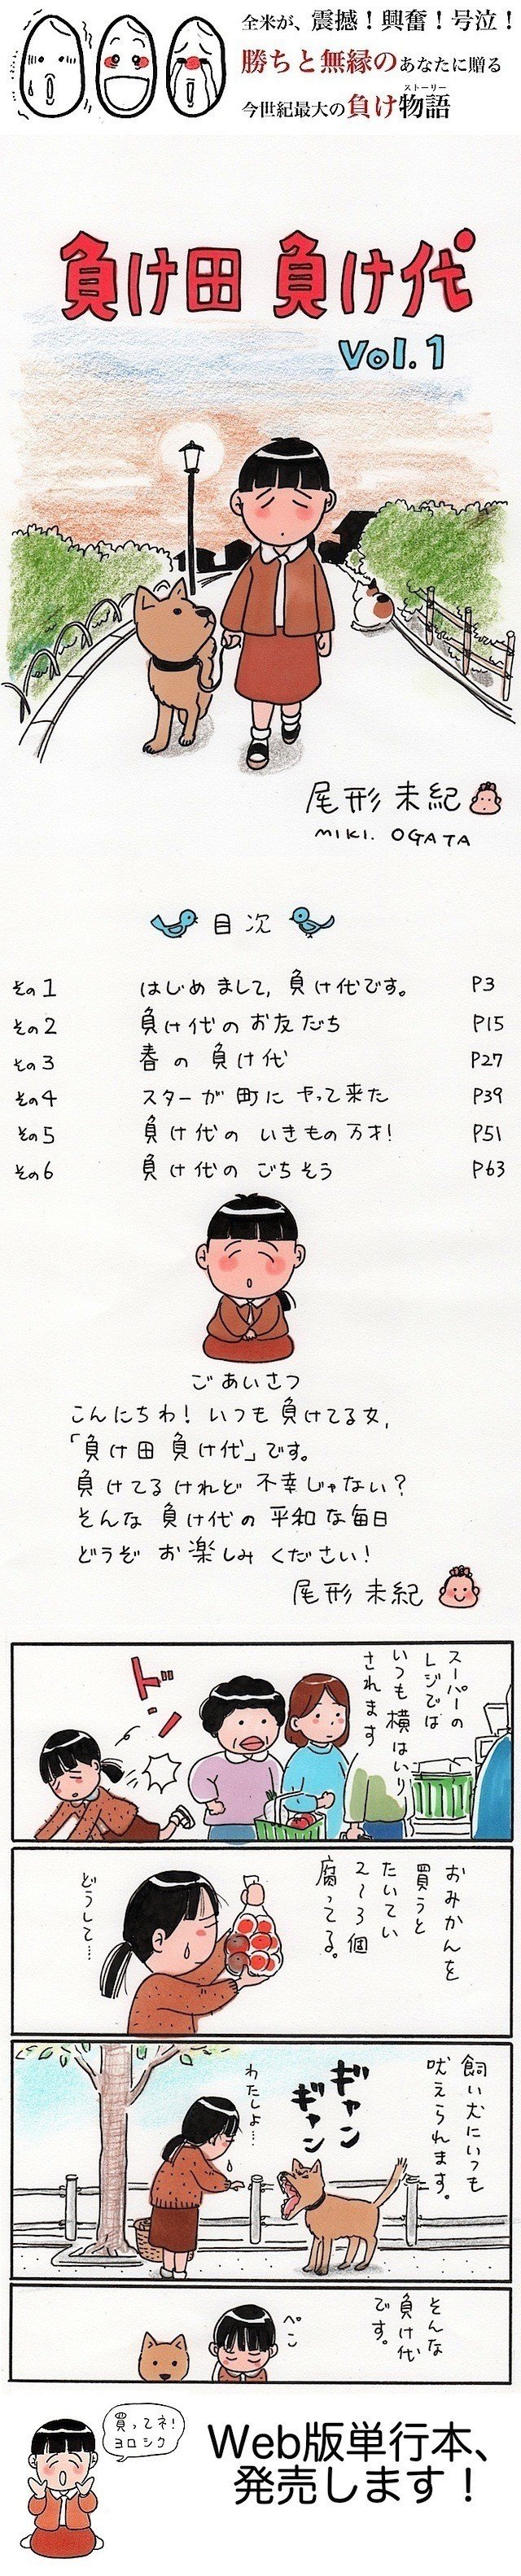 全米が、震撼！興奮！号泣！
勝ちと無縁のあなたに贈る
今世紀最大の負け物語
ストーリー
負け田 負け代
Vol.1
尾形 未紀
MIKI. OGATA
目次
その1 はじめまして、負け代です。 P3
その2 負け代のお友だち P15
その3 春の負け代 P27
その4 スターが町にやって来た P39
その5 負け代のいきもの万才! P51
その6 負け代のごちそう P63
ごあいさつ
こんにちわ! いつも負けてる女、
「負け田 負け代」です。
負けてるけれど不幸じゃない?
そんな負け代の平和な毎日
どうぞお楽しみください!
尾形 未紀
スーパーの
レジでは
いつも横はいり
されます
ドン
おみかんを
買うと
たいてい
2〜3個
腐ってる。
どうして…
飼い犬にいつも
吠えられます。
ギャン
ギャン
わたしよ…
そんな
負け代
です。
ペこ
買ってネ!
ヨロシク
Web版単行本、
発売します！